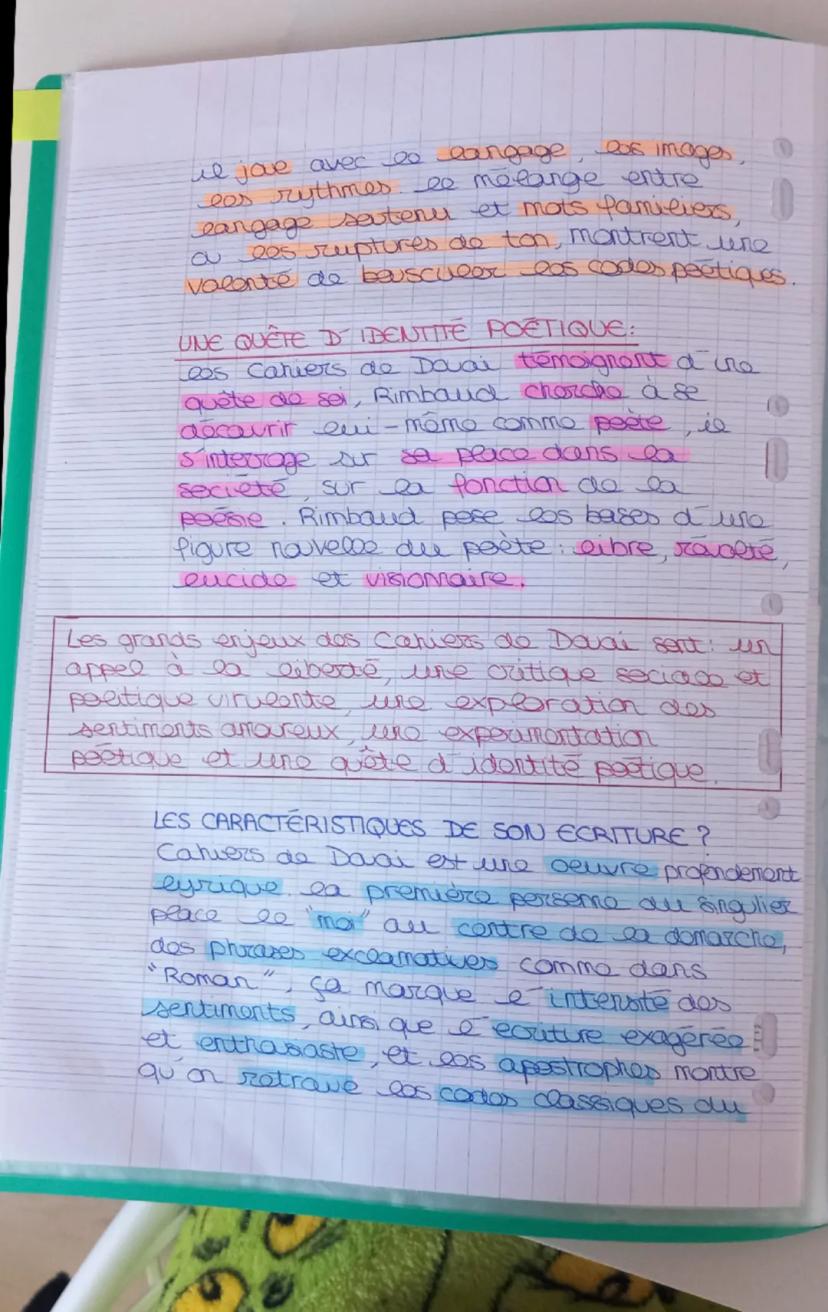 il joue avec le langage, les images,
les rythmes le mélange entre
langage soutenu et mots familiers,
a les ruptures de ton, montrent une
volonté de bousculer les codes poétiques.
UNE QUÊTE D'IDENTITÉ POÉTIQUE:
Les Cahiers de Douai témoignent d'une
quête de soi, Rimbaud cherche à se
découvrir lui-même comme poète, il
s'interroge sur sa place dans la
société, sur la fonction de la
poésie. Rimbaud pose les bases d'une
figure nouvelle du poète: libre, révolté,
lucide et visionnaire.
Les grands enjeux des Cahiers de Douai sont: un
appel à la liberté, une critique sociale et
politique virulente, une exploration des
sentiments amoureux, une expérimentation
poétique et une quête d'identité poétique.
LES CARACTÉRISTIQUES DE SON ECRITURE?
Cahiers de Douai est une oeuvre profondement
lyrique. la première personne du singulier
place le "moi" au centre de la démarche,
des phrases exclamatives comme dans
"Roman", ça marque l'intensité des
sentiments, ainsi que l'écriture exagérée
et enthousiaste, et les apostrophes montre
qu'on retrouve les codes classiques du